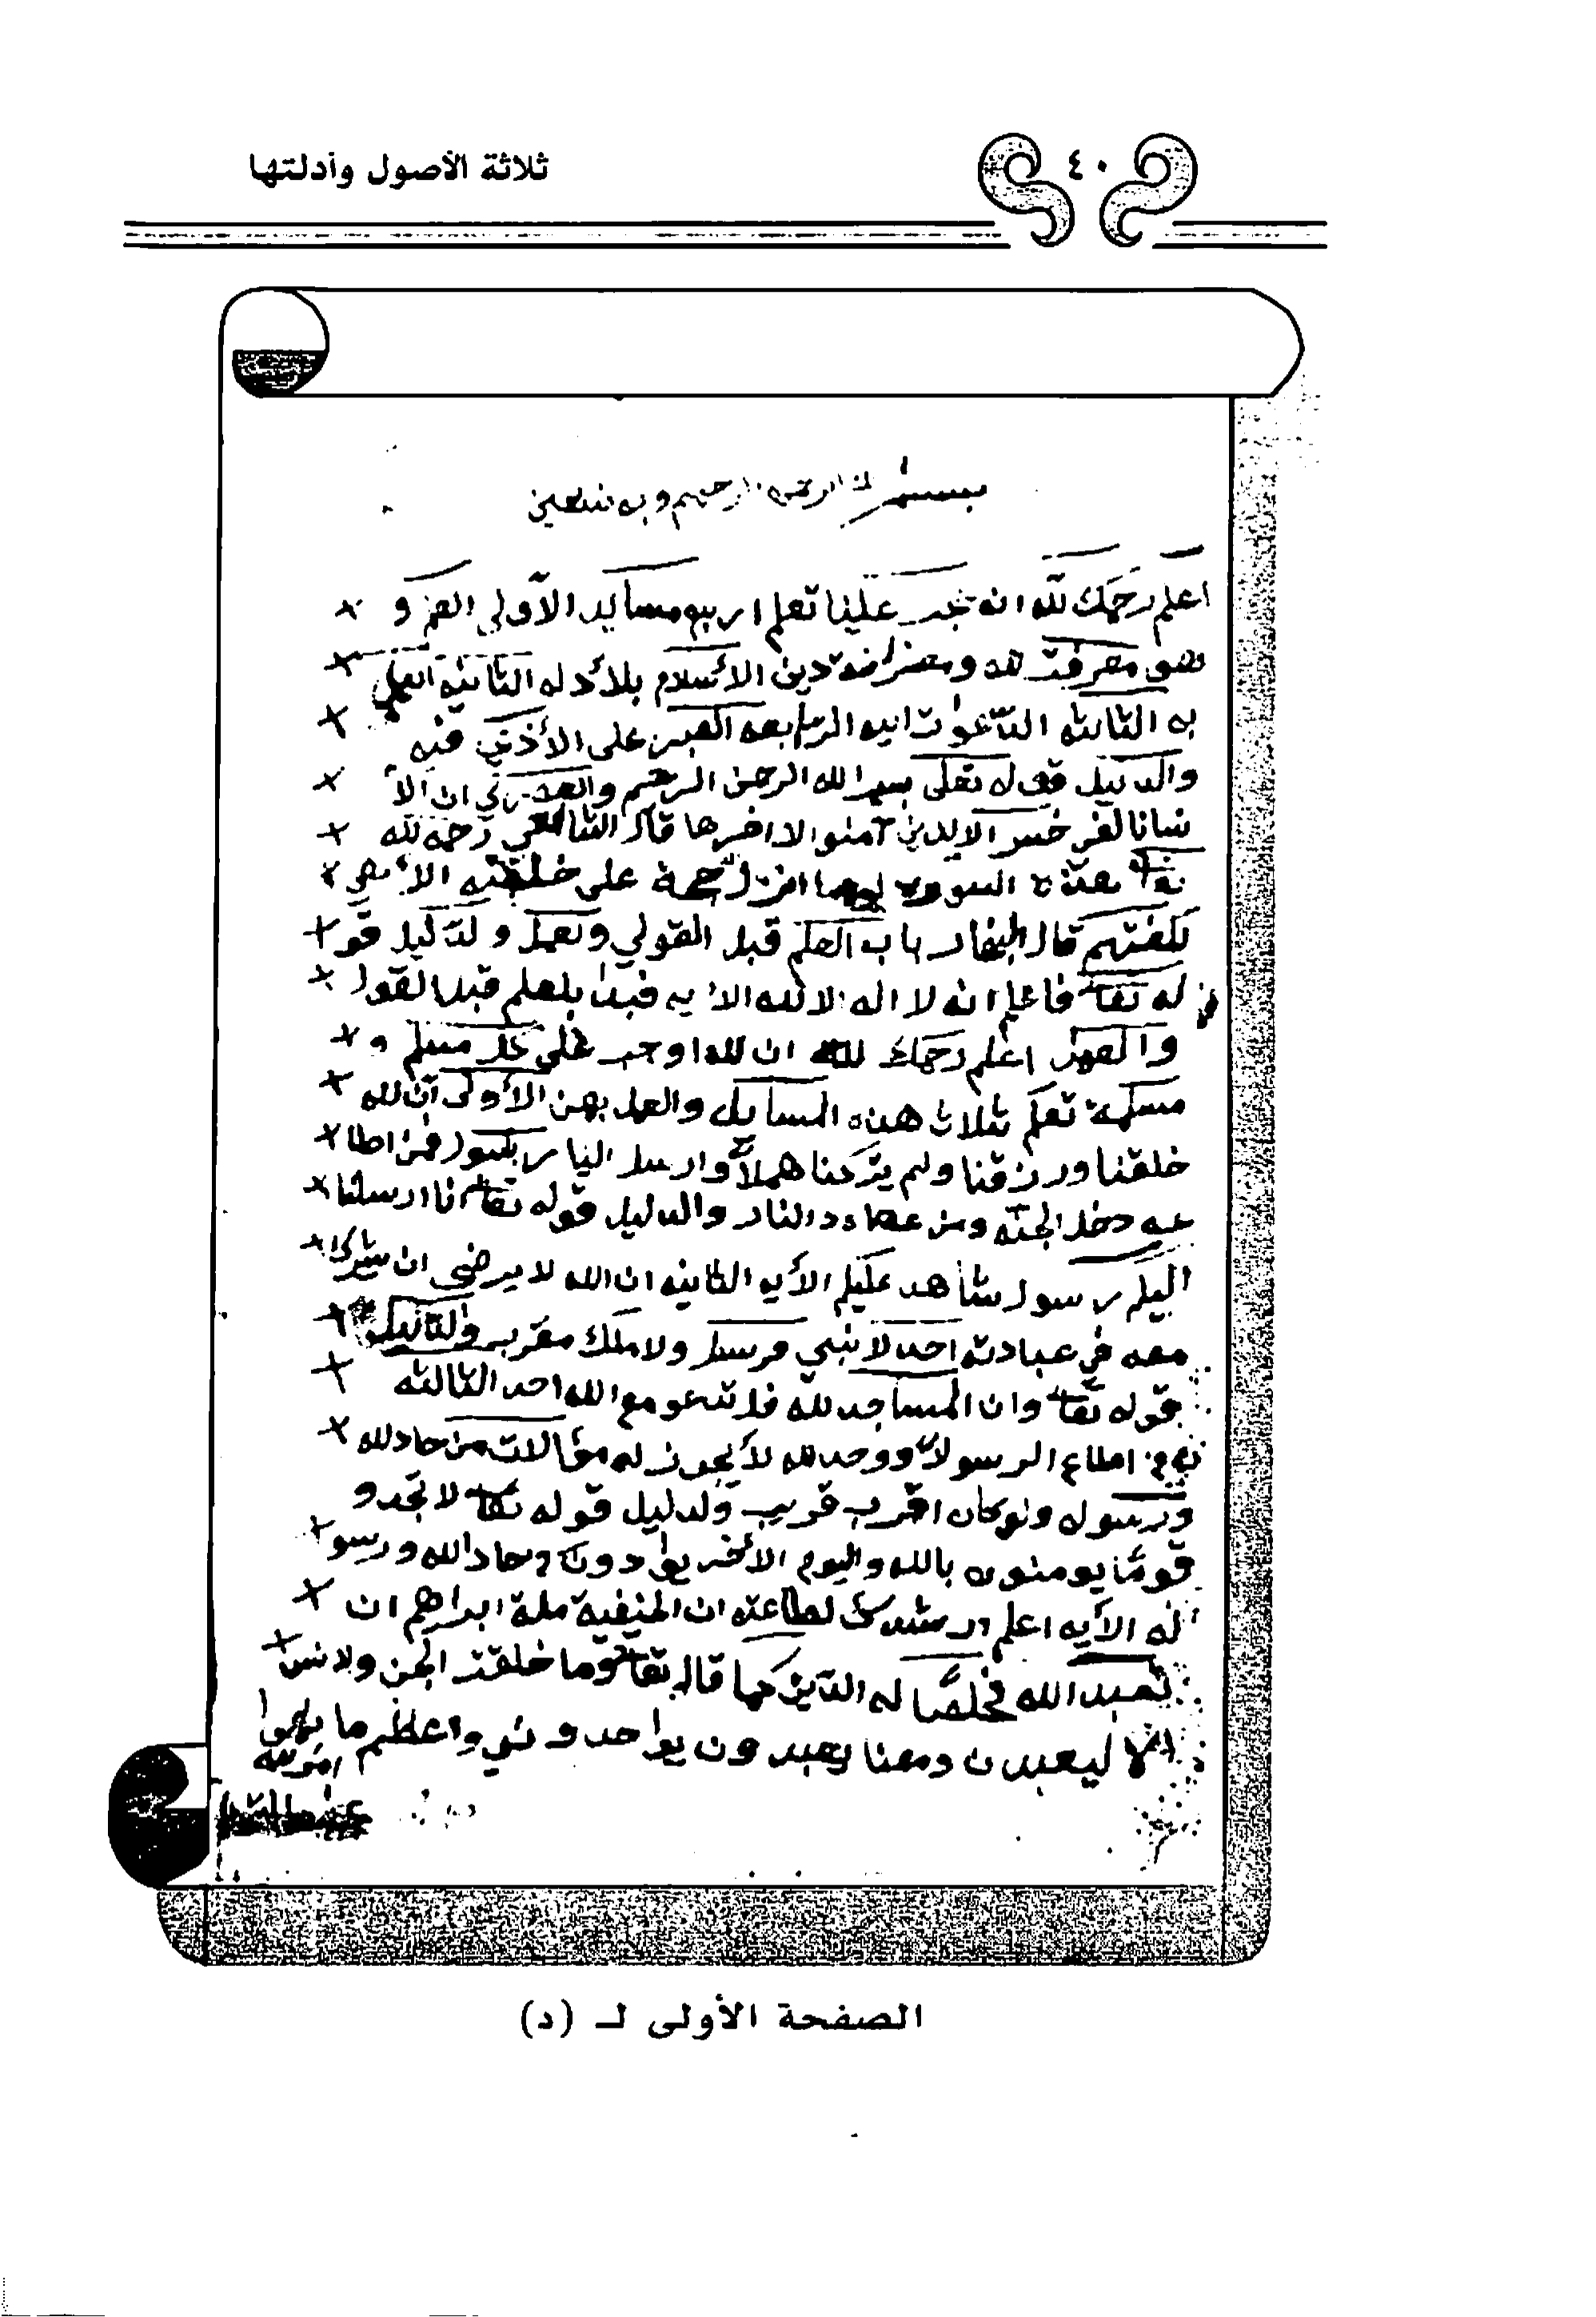 ثلاثة الأصول وأدلتها
٤٠
بسم الله الرحمن الرحيم وبه نستعين
اعلم رحمك لله انه يجب علينا تعلم اربع مسايل الأولى العلم و
هو معرفت لله ومعرفة دين الأسلام بلأدله الثانيه العمل
به الثالثه الدعوات اليه الرابعه الصبر على الأذى فيه
والدليل قوله تعلى بسم الله الرحمن الرحيم والعصر ان الأ
نسانا لفي خسر الا الذين آمنو الا اخرها قال الشافعي رحمه لله
تعا هذه السوره لو ما انزل حجة على خلقه الا هي
لكفتهم قال البخار باب العلم قبل القولي ولعمل ولدليل قو
له تعا فاعلم انه لا اله الا لله الأيه فبدا بلعلم قبل القول
والعمل اعلم رحمك لله ان لله اوجب على كل مسلم و
مسلمة تعلم ثلاث هذه المسايل والعمل بهن الأولى ان لله
خلقنا ورزقنا ولم يتركنا هملاً وارسل الينا رسول فمن اطا
عه دخل الجنه ومن عصاه د النار والدليل قوله تعا انا ارسلنا
اليكم رسول شاهد عليكم الأيه الثانيه ان الله لا يرضى ان يشرك
معه في عبادته احد لا نبي مرسل ولا ملك مقرب والدليل
قوله تعا وان المساجد لله فلا تدعو مع الله احد الثالثه
من اطاع الرسول ووحد لله لا يجوز له موالات من حاد لله
ورسوله ولو كان اقرب قريب ولدليل قوله تعا لا تجد و
قوماً يومنون بالله واليوم الأخر يوادون من حاد الله ورسو
له الأيه اعلم ارشدك لطاعته ان الحنفية ملة ابراهم ان
تعبد الله مخلصًا له الدين كما قال تعا وما خلقت الجن ولانس
الا ليعبدن ومعنا يعبدون يواحدوني واعظم ما
الصفحة الأولى لـ (د)